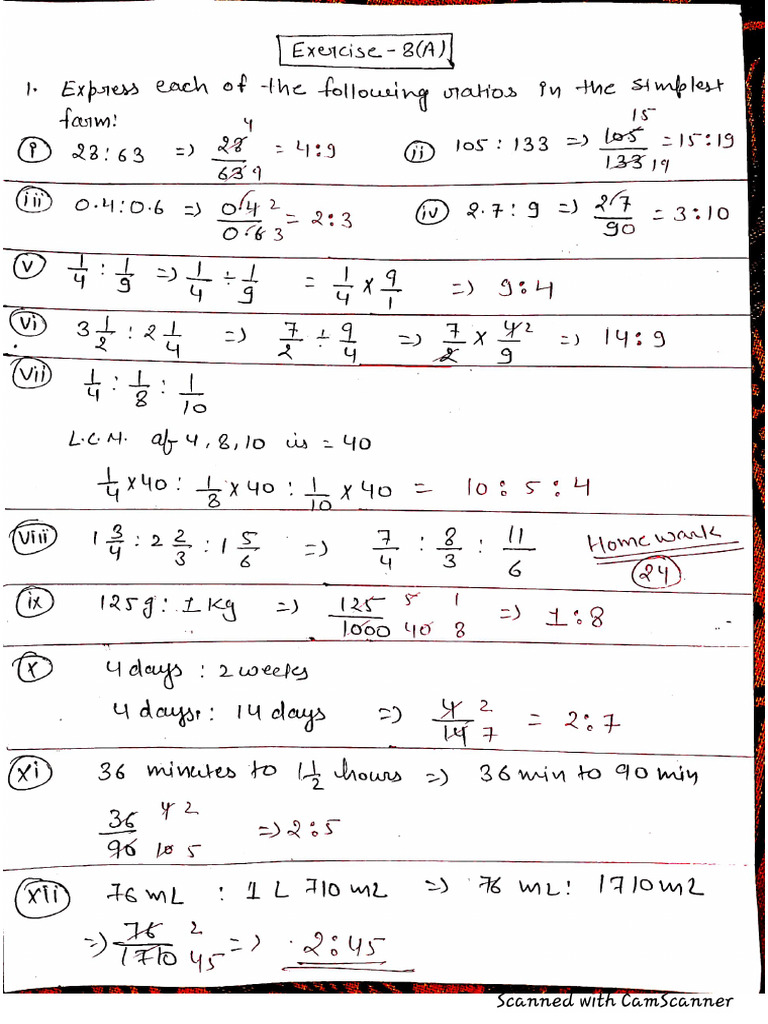 Exercise - 8(A)
1. Express each of the following ratios in the simplest
farm:
(i) 28 : 63 => 28/63 4 9 = 4:9 (ii) 105 : 133 => 105/133 15 19 = 15:19
(iii) 0.4 : 0.6 => 0.4/0.6 2 3 = 2:3 (iv) 2.7 : 9 => 27/90 = 3:10
(v) 1/4 : 1/9 => 1/4 ÷ 1/9 = 1/4 × 9/1 => 9:4
(vi) 3 1/2 : 2 1/4 => 7/2 ÷ 9/4 => 7/2 × 4/9 2 => 14:9
(vii) 1/4 : 1/8 : 1/10
L.C.M. af 4, 8, 10 is = 40
1/4 × 40 : 1/8 × 40 : 1/10 × 40 = 10 : 5 : 4
(viii) 1 3/4 : 2 2/3 : 1 5/6 => 7/4 : 8/3 : 11/6 Home wark
24
(ix) 125g : 1 Kg => 125/1000 5 1 40 8 => 1:8
(x) 4 days : 2 weeks
4 days : 14 days => 4/14 2 7 = 2:7
(xi) 36 minutes to 1 1/2 hours => 36 min to 90 min
36/90 4 2 10 5 => 2:5
(xii) 76 mL : 1 L 710 mL => 76 mL : 1710 mL
=> 76/1710 2 45 => 2:45
Scanned with CamScanner